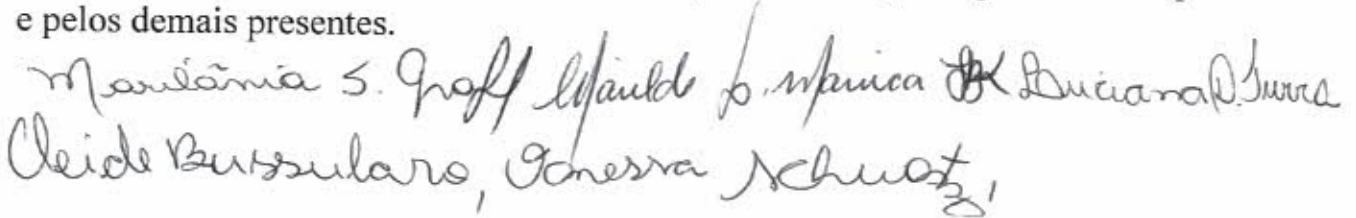 e pelos demais presentes.
Marilânia S. Graff Luciana D. Turra
Cleide Bussularo, Vanessa Schwatz,